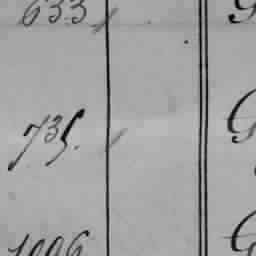 633
735.
1006